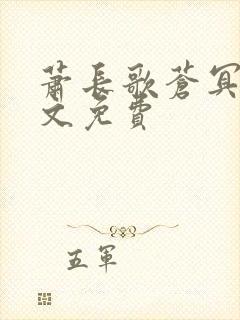 蕭長歌蒼冥
文免費
五軍